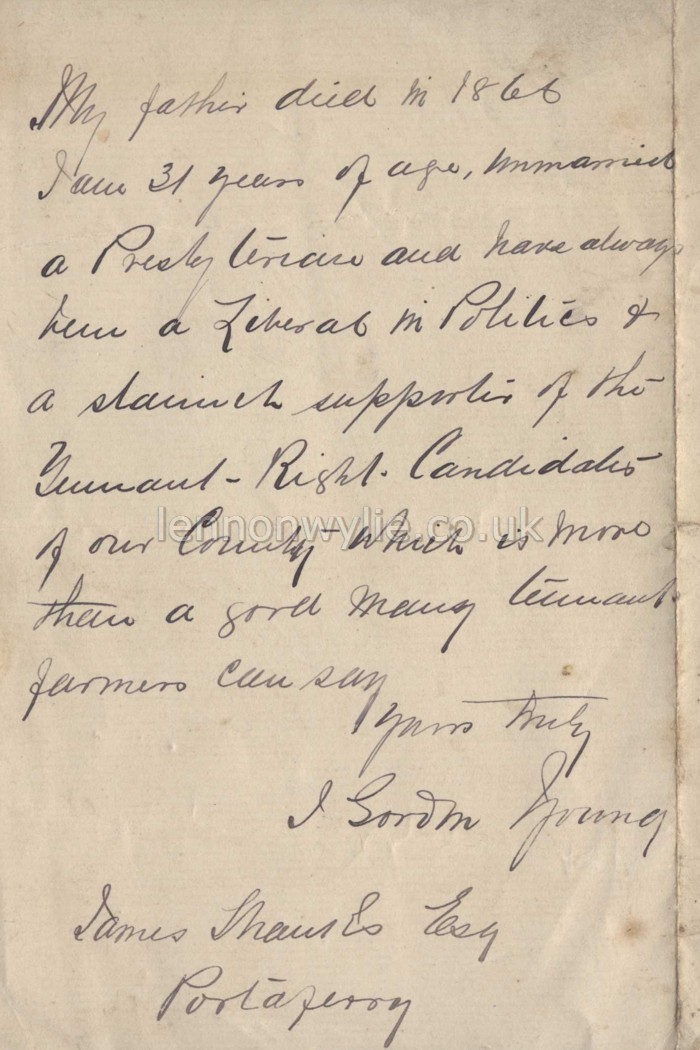 My father died in 1866
I am 31 years of age, unmarried
a Presbyterian and have always
been a Liberal in Politics &
a staunch supporter of the
Tennant-Right. Candidates
of our County which is more
than a good many tennant-
farmers can say
Yours truly
J Gordon Young
James Shanks Esq
Portaferry
lennonwylie.co.uk